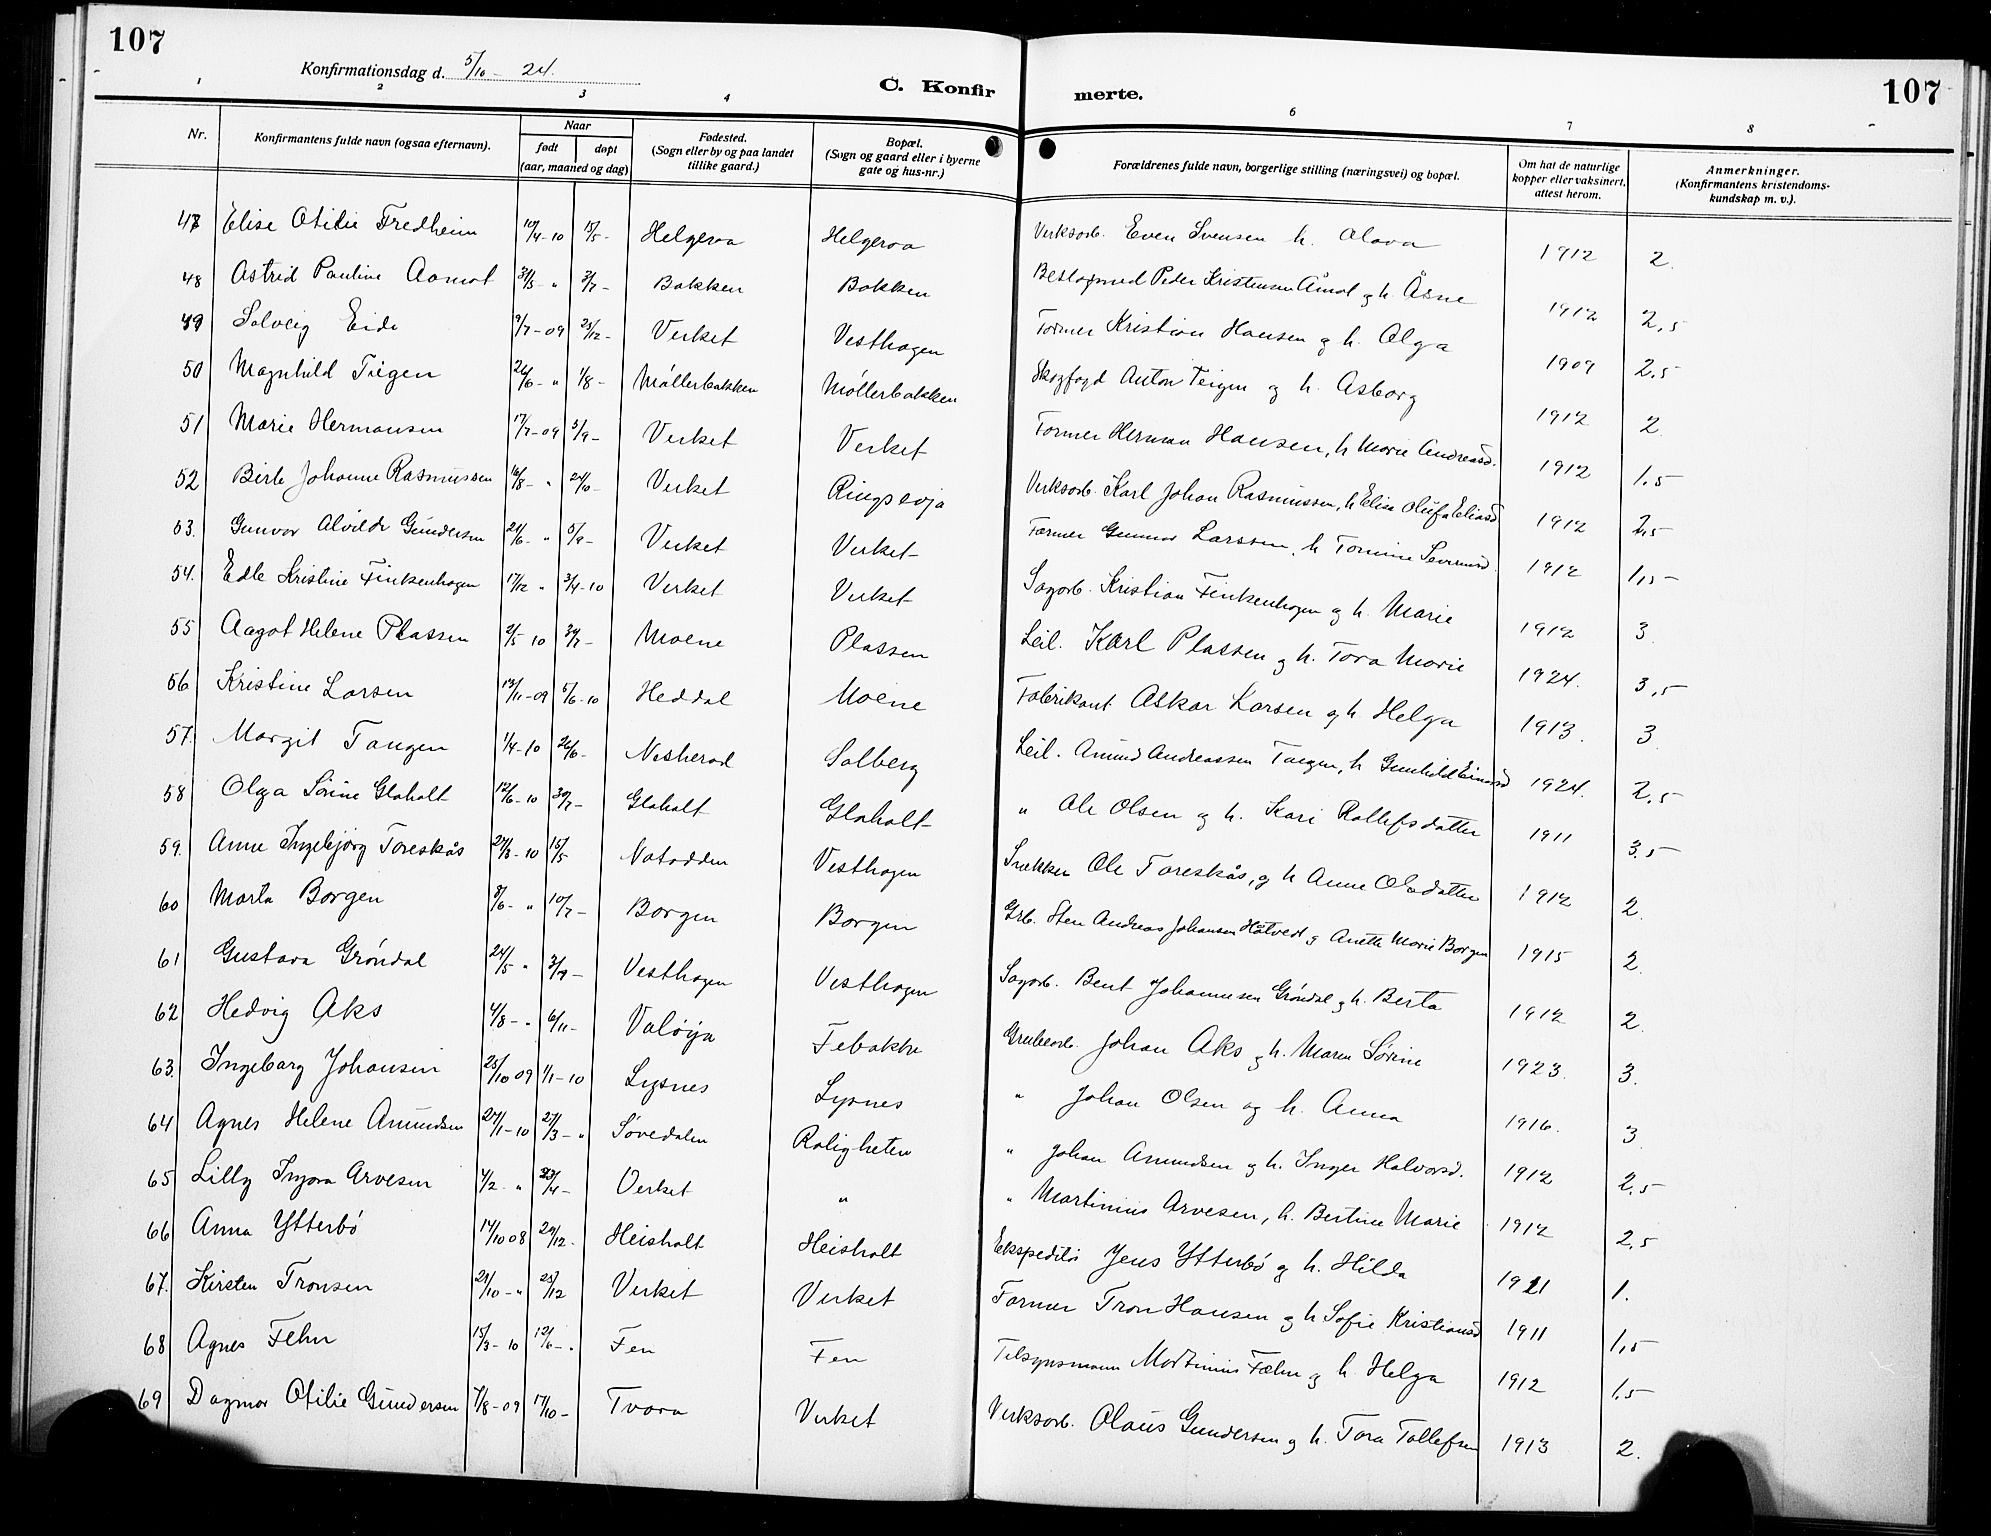 107
107
Konfirmationsdag d. 5/10 - 24.
C. Konfir merte.
1 2 3 4 6 7 8
Nr.
Konfirmantens fulde navn (ogsaa efternavn).
Naar
født døpt
(aar, maaned og dag)
Fødested.
(Sogn eller by og paa landet
tillike gaard.)
Bopæl.
(Sogn og gaard eller i byerne
gate og hus-nr.)
Forældrenes fulde navn, borgerlige stilling (næringsvei) og bopæl.
Om hat de naturlige
kopper eller vaksinert,
attest herom.
Anmerkninger.
(Konfirmantens kristendoms-
kundskap m. v.).
47 Elise Otilie Fredheim 10/4-10 15/5- Helgeroa Helgeroa Verksarb. Even Svensen h. Olava 1912 2.
48 Astrid Pauline Aamot 31/5 - " 3/7- Bakken Bakken Peder Kristensen Åmot og h. Åsne 1912 2,5
49 Solveig Eide 9/7-09 25/12- Verket Vesthagen Former Kristian Hansen og h. Olga 1909 2,5
50 Magnhild Teigen 26/6- " 1/8- Møllerbakken Møllerbakken Skogfogd Anton Teigen og h. Asborg 1912 2
51 Marie Hermansen 17/7-09 5/9- Verket Verket Former Herman Hansen, h Marie Andreasd. 1912 1,5
52 Birte Johanne Rasmussen 16/8- " 24/10- Verket Ringsevja Verksarb. Karl Johan Rasmussen, h Elise Olufa Eliasd 1912 2,5
53. Gunvor Alvilde Gundersen 21/6- " 5/9- Verket Verket Former Gunnar Larssen, h Tomine Severinsd. 1912 1,5
54. Edle Kristine Finkenhagen 17/12 " 3/4-10 Verket Verket Sagarb. Kristian Finkenhagen og h. Marie 1912 3
55 Aagot Helene Plassen 2/5 10 Moene Plassen Leil. Karl Plassen og h. Tora Marie 1924. 3,5
56 Kristine Larsen 13/11-09 5/6-10 Heddal Moene Fabrikant Askar Larsen og h Helga 1913. 3
57. Margit Tangen 1/4-10 26/6- Nesherad Solberg Leil. Amund Andreassen Tangen, h Gunhild 1924. 2,5
58 Olga Sørine Glaholt 12/6-10 30/7- Glaholt Glaholt " Ole Olsen og h. Kari Rollefsdatter 1911 3.5
59. Anne Ingebjørg Toreskås 27/3-10 15/5 Notodden Vesthagen Snekker Ole Toreskås, og h Anne Olsdatter 1912 2.
60 Marta Borgen 8/6- " 10/7- Borgen Borgen Grb. Sten Andreas Johansen Håtvedt og Anette Marie Borgen 1915 2
61 Gustava Grøndal 24/5 " 3/9- Vesthagen Vesthagen Sagarb. Bent Johannesen Grøndal og h. Berta 1912 2
62 Hedvig Aks 4/8- " 6/11- Valøya Febakke Grubearb. Johan Aks og h. Maren Sørine 1923. 3.
63. Ingeborg Johansen 25/10 09 1/1-10 Lysnes Lysnes " Johan Olsen og h. Anna 1916. 3
64 Agnes Helene Amundsen 27/1-10 27/3- " Søvedalen Roligheten " Johan Amundsen og h. Inger Halvorsd. 1912 2,5
65 Lilly Ingora Arvesen 4/2 - " Verket " " Martinius Arvesen, h. Bertine Marie 1912 2,5
66 Anna Ytterbø 14/10 08 29/12- Heisholt Heisholt Ekspeditør Jens Ytterbø og h. Hilda 1921 1.
67. Kirsten Tronsen 21/10- " 25/12 Verket Verket Former Tron Hansen og h Sofie Kristiansd 1911 1,5
68 Agnes Fehn 15/3-10 12/6- Fen Fen Tilsynsmann Martinius Fæhn og h. Helga 1912 1.5
69 Dagmar Otilie Gundersen 7/8-09 17/10- Tvara Verket Verksarb. Olaus Gundersen og h. Tora Tollefsen 1913 2.